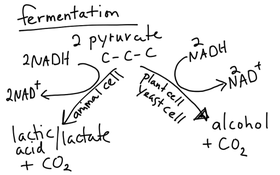 fermentation
2 pyruvate
C-C-C
2NADH
2NAD+
animal cell
lactic acid/lactate
+ CO2
2 NADH
2 NAD+
plant cell
yeast cell
alcohol
+ CO2